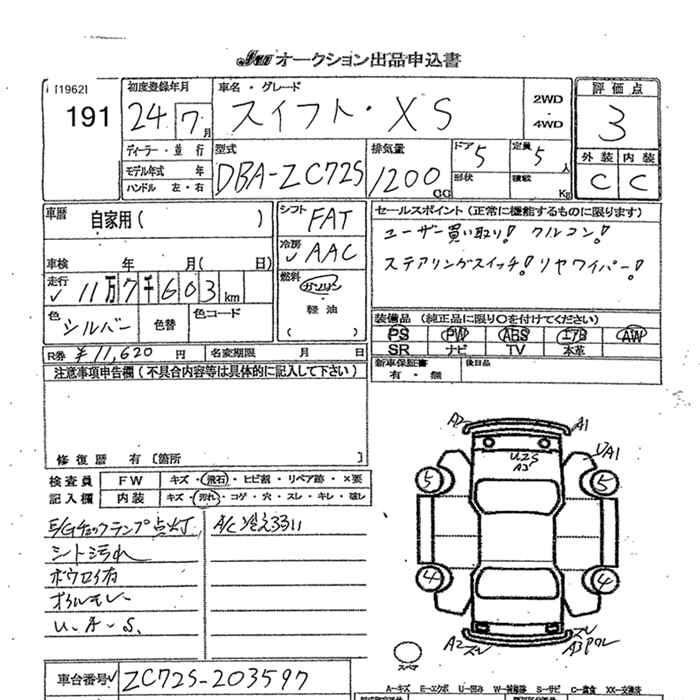 オークション出品申込書
[1962]
191
初度登録年月
24年 7月
車名・グレード
スイフト・XS
2WD
4WD
評価点
3
外装 内装
C C
ディーラー・並行
モデル年式 年
ハンドル 左・右
型式
DBA-ZC72S
排気量
1200 CC
ドア 5
形状
定員 5 人
積載 Kg
車歴
自家用( )
シフト FAT
冷房 AAC
車検 年 月( 日)
走行 11万7千603km
燃料
ガソリン
軽油
( )
色 シルバー
色替
色コード
R券 ¥11,620 円
名変期限 月 日
セールスポイント(正常に機能するものに限ります)
ユーザー買い取り! クルコン!
ステアリングスイッチ! リヤワイパー!
装備品(純正品に限り〇を付けてください)
PS PW ABS エアB AW
SR ナビ TV 本革
新車保証書
有・無
後日品
注意事項申告欄(不具合内容等は具体的に記入して下さい)
修復歴 有〔箇所
検査員
記入欄
FW キズ・飛石・ヒビ割・リペア跡・×要
内装 キズ・汚れ・コゲ・穴・スレ・キレ・破レ
E/Gチェックランプ点灯
A/C冷え33い
シート汚れ
U.A.S.
A2 A1
U2S
A2
UA1
5 5
4 4
A2 スレ
スレ
A3
スペア
車台番号 ZC72S-203597
A-キズ E-エクボ U-凹み W-補修跡 S-サビ C-腐食 XX-交換済